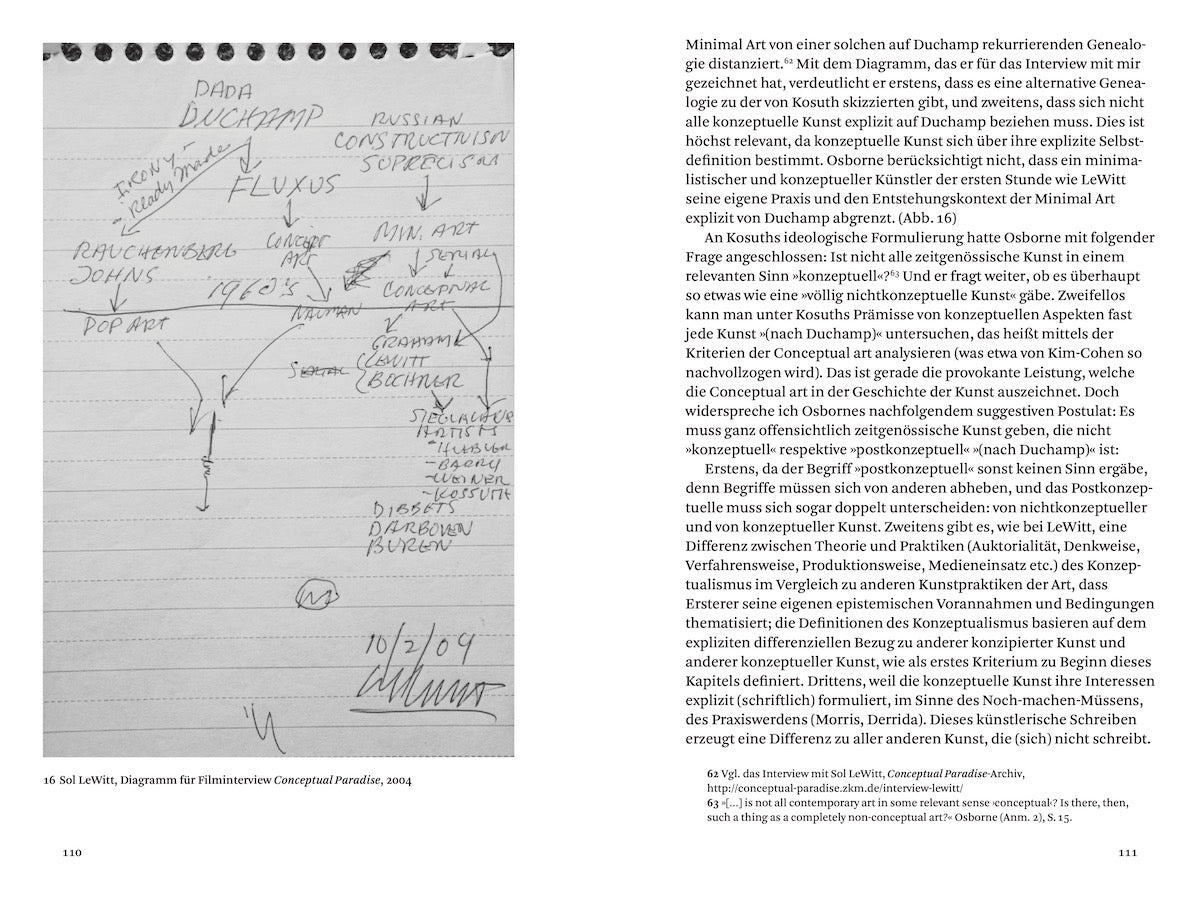 DADA
DUCHAMP
IRONY -
- Ready Made
FLUXUS
RUSSIAN
CONSTRUCTIVISM
SUPRECISM
RAUCHENBERG
JOHNS
CONCEPT
ART
MIN. ART
SERIAL
CONCEPTUAL
ART
1960's
POP ART
NAUMAN
GRAHAM
LEWITT
BOCHNER
SERIAL
ARTISTS
- HUEBLER
- BARRY
- WEINER
- KOSSUTH
DIBBETS
DARBOVEN
BUREN
16 Sol LeWitt, Diagramm für Filminterview Conceptual Paradise, 2004
110
Minimal Art von einer solchen auf Duchamp rekurrierenden Genealo-
gie distanziert.62 Mit dem Diagramm, das er für das Interview mit mir
gezeichnet hat, verdeutlicht er erstens, dass es eine alternative Genea-
logie zu der von Kosuth skizzierten gibt, und zweitens, dass sich nicht
alle konzeptuelle Kunst explizit auf Duchamp beziehen muss. Dies ist
höchst relevant, da konzeptuelle Kunst sich über ihre explizite Selbst-
definition bestimmt. Osborne berücksichtigt nicht, dass ein minima-
listischer und konzeptueller Künstler der ersten Stunde wie LeWitt
seine eigene Praxis und den Entstehungskontext der Minimal Art
explizit von Duchamp abgrenzt. (Abb. 16)
An Kosuths ideologische Formulierung hatte Osborne mit folgender
Frage angeschlossen: Ist nicht alle zeitgenössische Kunst in einem
relevanten Sinn »konzeptuell«?63 Und er fragt weiter, ob es überhaupt
so etwas wie eine »völlig nichtkonzeptuelle Kunst« gäbe. Zweifellos
kann man unter Kosuths Prämisse von konzeptuellen Aspekten fast
jede Kunst »(nach Duchamp)« untersuchen, das heißt mittels der
Kriterien der Conceptual art analysieren (was etwa von Kim-Cohen so
nachvollzogen wird). Das ist gerade die provokante Leistung, welche
die Conceptual art in der Geschichte der Kunst auszeichnet. Doch
widerspreche ich Osbornes nachfolgendem suggestiven Postulat: Es
muss ganz offensichtlich zeitgenössische Kunst geben, die nicht
»konzeptuell« respektive »postkonzeptuell« »(nach Duchamp)« ist:
Erstens, da der Begriff »postkonzeptuell« sonst keinen Sinn ergäbe,
denn Begriffe müssen sich von anderen abheben, und das Postkonzep-
tuelle muss sich sogar doppelt unterscheiden: von nichtkonzeptueller
und von konzeptueller Kunst. Zweitens gibt es, wie bei LeWitt, eine
Differenz zwischen Theorie und Praktiken (Auktorialität, Denkweise,
Verfahrensweise, Produktionsweise, Medieneinsatz etc.) des Konzep-
tualismus im Vergleich zu anderen Kunstpraktiken der Art, dass
Ersterer seine eigenen epistemischen Vorannahmen und Bedingungen
thematisiert; die Definitionen des Konzeptualismus basieren auf dem
expliziten differenziellen Bezug zu anderer konzipierter Kunst und
anderer konzeptueller Kunst, wie als erstes Kriterium zu Beginn dieses
Kapitels definiert. Drittens, weil die konzeptuelle Kunst ihre Interessen
explizit (schriftlich) formuliert, im Sinne des Noch-machen-Müssens,
des Praxiswerdens (Morris, Derrida). Dieses künstlerische Schreiben
erzeugt eine Differenz zu aller anderen Kunst, die (sich) nicht schreibt.
62 Vgl. das Interview mit Sol LeWitt, Conceptual Paradise-Archiv,
http://conceptual-paradise.zkm.de/interview-lewitt/
63 »[…] is not all contemporary art in some relevant sense ›conceptual‹? Is there, then,
such a thing as a completely non-conceptual art?« Osborne (Anm. 2), S. 15.
111